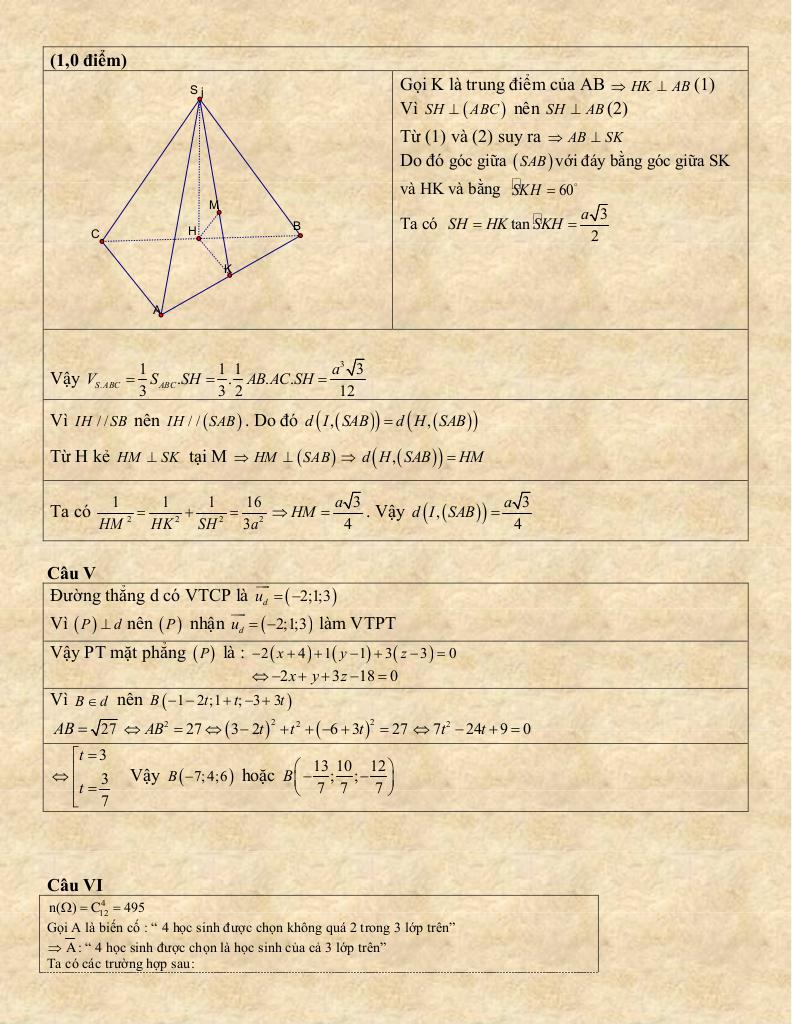 (1,0 điểm)
S j
M
C
H
B
K
A
Gọi K là trung điểm của AB ⇒ HK ⊥ AB (1)
Vì SH ⊥ (ABC) nên SH ⊥ AB (2)
Từ (1) và (2) suy ra ⇒ AB ⊥ SK
Do đó góc giữa (SAB) với đáy bằng góc giữa SK
và HK và bằng SKH = 60°
Ta có SH = HK tan SKH = a√3/2
Vậy V_{S.ABC} = 1/3 S_{ABC}.SH = 1/3 . 1/2 AB.AC.SH = a³√3/12
Vì IH //SB nên IH //(SAB). Do đó d(I,(SAB)) = d(H,(SAB))
Từ H kẻ HM ⊥ SK tại M ⇒ HM ⊥ (SAB) ⇒ d(H,(SAB)) = HM
Ta có 1/HM² = 1/HK² + 1/SH² = 16/3a² ⇒ HM = a√3/4 . Vậy d(I,(SAB)) = a√3/4
Câu V
Đường thẳng d có VTCP là u_d = (−2;1;3)
Vì (P) ⊥ d nên (P) nhận u_d = (−2;1;3) làm VTPT
Vậy PT mặt phẳng (P) là : −2(x+4)+1(y−1)+3(z−3)=0
⇔ −2x+ y+3z−18=0
Vì B ∈ d nên B(−1−2t;1+t;−3+3t)
AB = √27 ⇔ AB² = 27 ⇔ (3−2t)² + t² + (−6+3t)² = 27 ⇔ 7t² −24t+9=0
⇔ [t = 3; t = 3/7 Vậy B(−7;4;6) hoặc B(−13/7;10/7;−12/7)
Câu VI
n(Ω) = C⁴₁₂ = 495
Gọi A là biến cố : “ 4 học sinh được chọn không quá 2 trong 3 lớp trên”
⇒ A̅ : “ 4 học sinh được chọn là học sinh của cả 3 lớp trên”
Ta có các trường hợp sau: